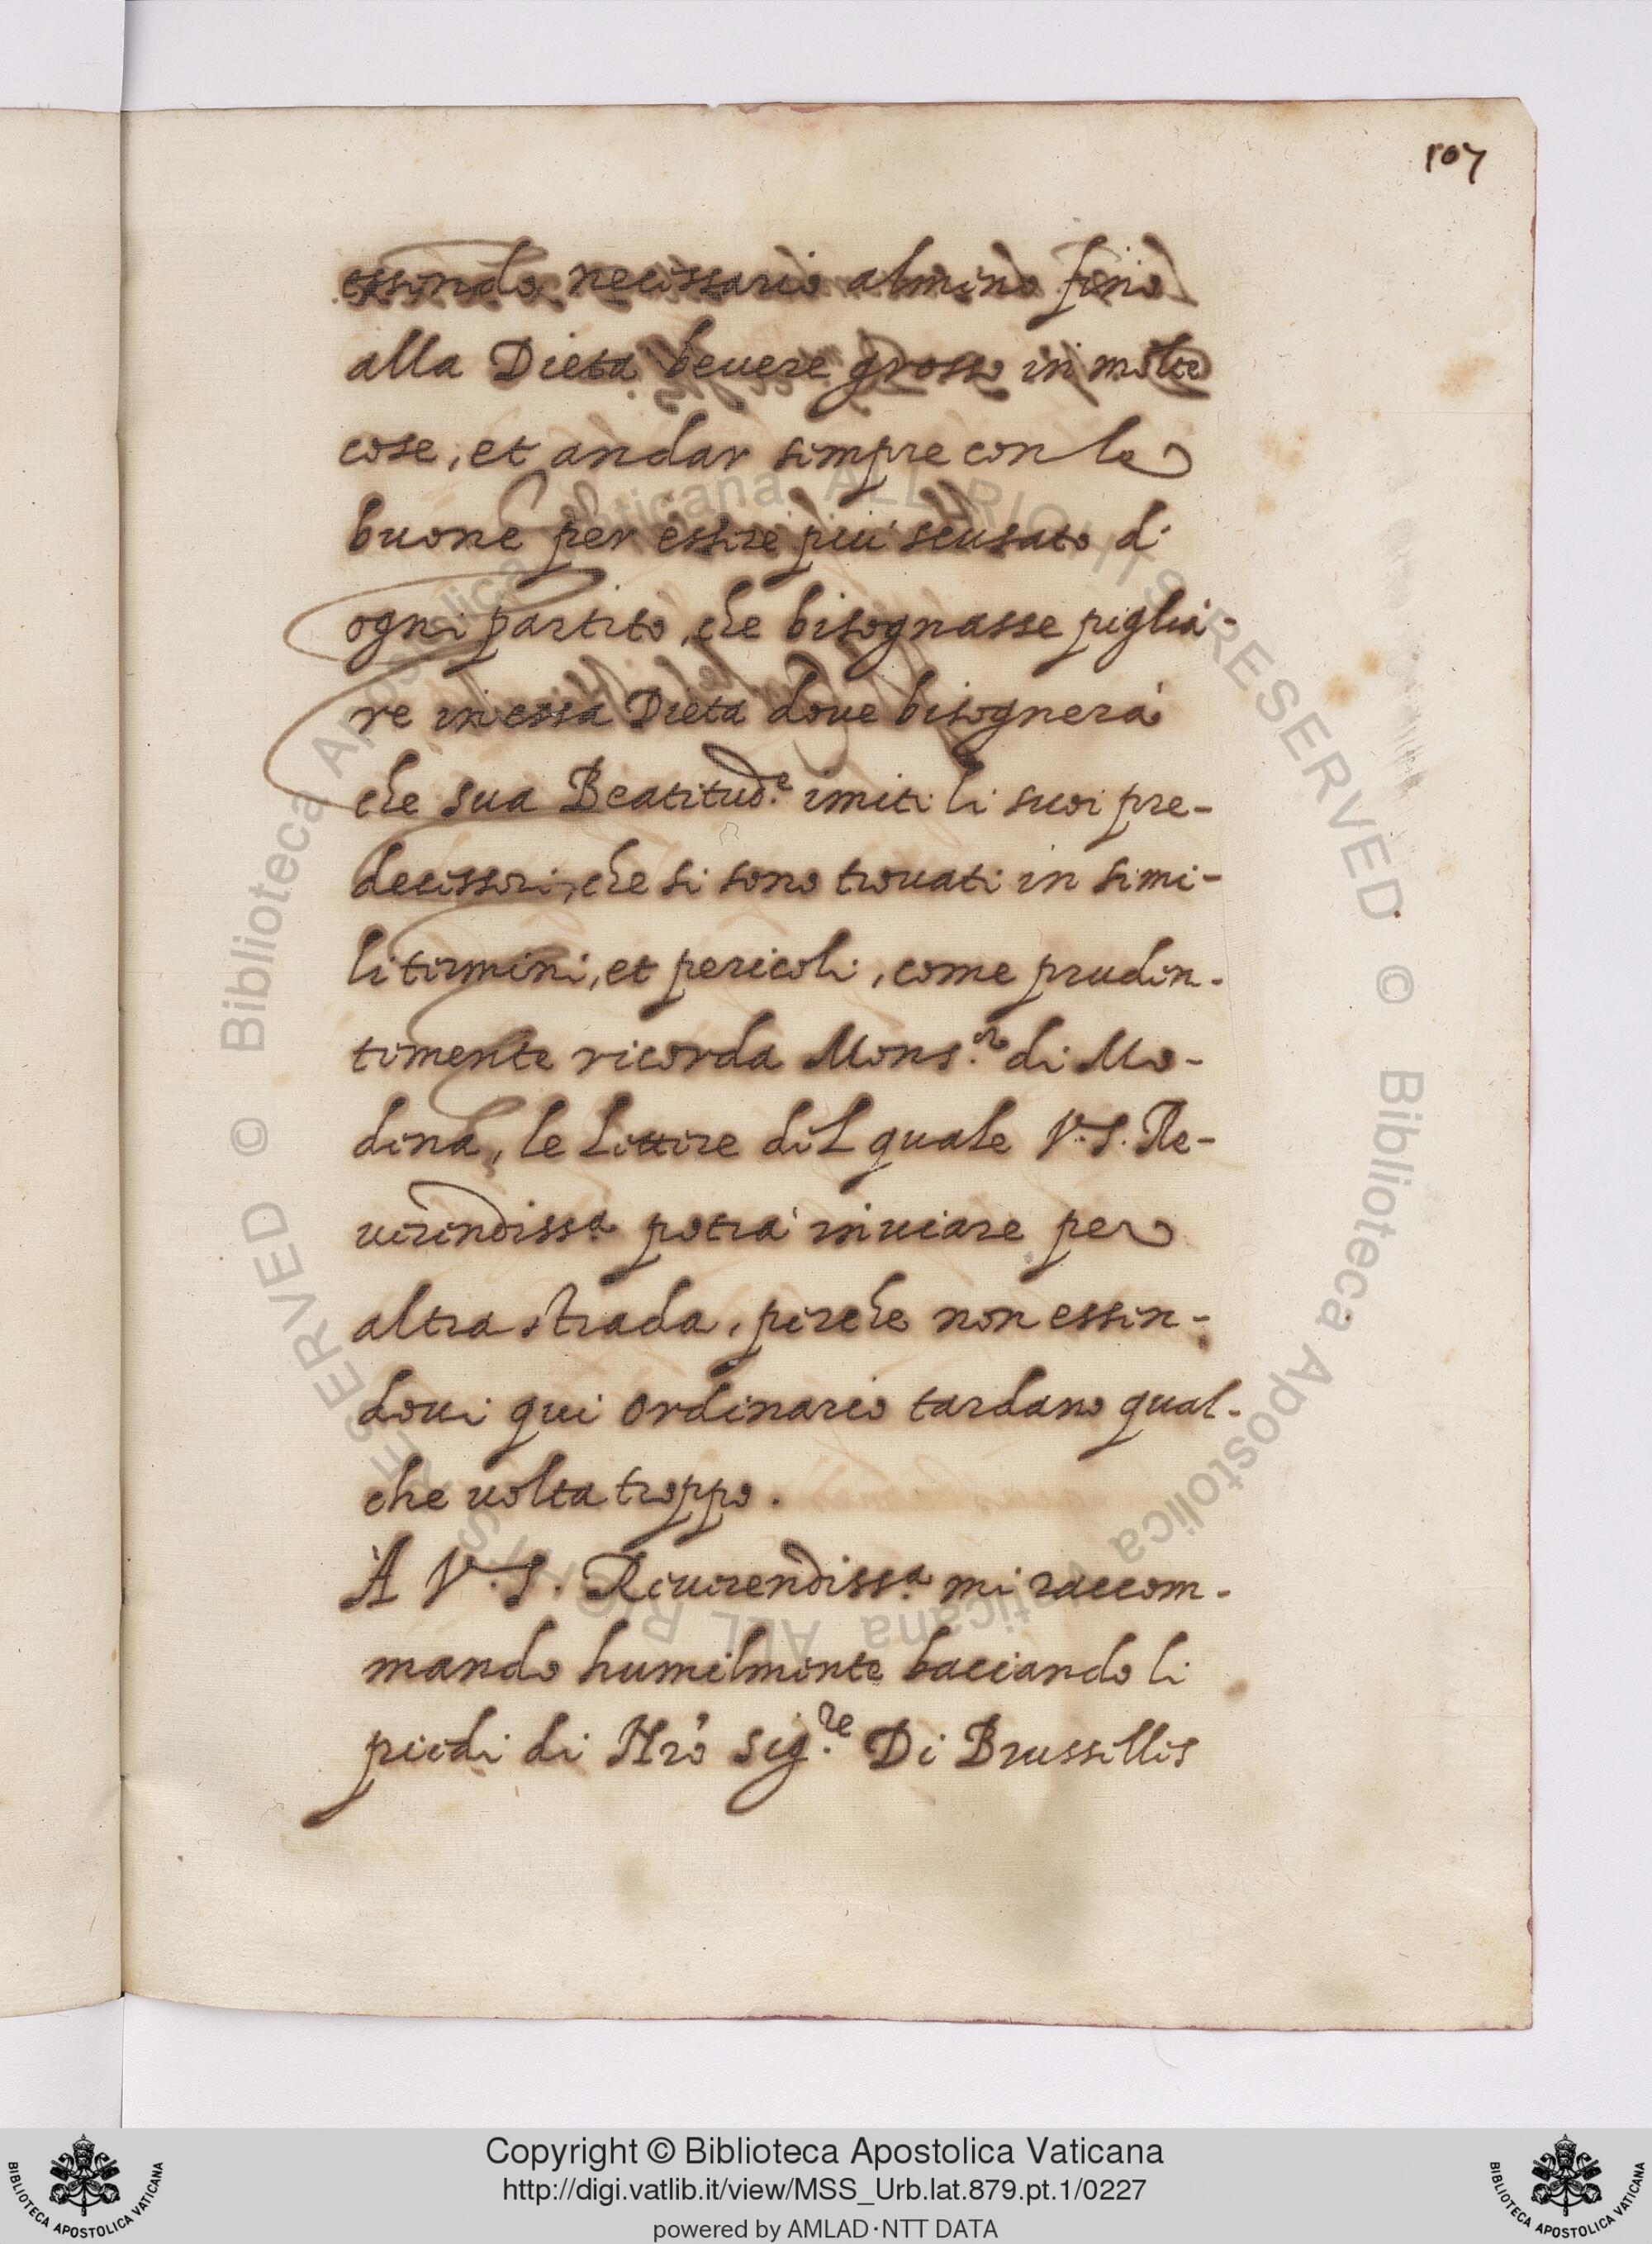 107
essendo necessario almeno fino
alla Dieta bevere grosso in molte
cose, et andar sempre con le
buone per essere più scusato di
ogni partito, che bisognasse piglia-
re in essa Dieta dove bisognerà
che sua Beatitud.e imiti li suoi pre-
decessori, che si sono trovati in simi-
li termini, et pericoli, come pruden-
temente ricorda Mons.or di Mo-
dena, le Lettere del quale V.S. Re-
verendiss.a potrà inviare per
altra strada, perche non essen-
dovi qui ordinario tardano qual-
che volta troppo.
A V.S. Reverendiss.a mi raccom-
mando humilmente baciando li
piedi di Nro Sig.re Di Brusselles
© Biblioteca Apostolica Vaticana ALL RIGHTS RESERVED © Biblioteca Apostolica Vaticana ALL RIGHTS RESERVED
Copyright © Biblioteca Apostolica Vaticana
http://digi.vatlib.it/view/MSS_Urb.lat.879.pt.1/0227
powered by AMLAD·NTT DATA
BIBLIOTECA APOSTOLICA VATICANA
BIBLIOTECA APOSTOLICA VATICANA